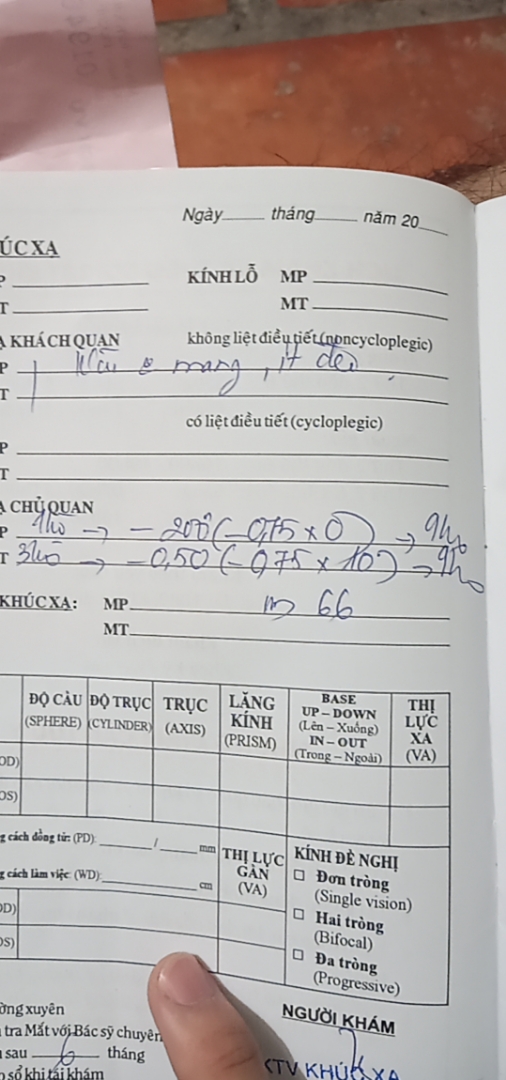 Ngày______ tháng______ năm 20____
ÚC XẠ
P
KÍNH LỖ MP
T
MT
KHÁCH QUAN không liệt điều tiết (noncycloplegic)
P
T
có liệt điều tiết (cycloplegic)
P
T
CHỦ QUAN
P → -200 (-0,75 x 0) →
T → -0,50 (-0,75 x 10) →
KHÚC XẠ: MP
66
MT
ĐỘ CẦU (SPHERE) ĐỘ TRỤC (CYLINDER) TRỤC (AXIS) LĂNG KÍNH (PRISM) BASE UP – DOWN (Lên – Xuống) IN – OUT (Trong – Ngoài) THỊ LỰC XA (VA)
OD)
OS)
g cách đồng tử: (PD): ______/______ mm
THỊ LỰC GẦN (VA)
g cách làm việc (WD):______ cm
OD)
OS)
KÍNH ĐỀ NGHỊ
☐ Đơn tròng
(Single vision)
☐ Hai tròng
(Bifocal)
☐ Đa tròng
(Progressive)
ờng xuyên
tra Mắt với Bác sỹ chuyên
sau 6 tháng
sổ khi tái khám
NGƯỜI KHÁM
KTV KHÚC XẠ